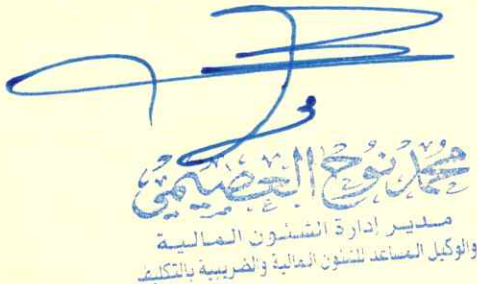 محمد نوح العصيمي
مدير إدارة الشئون المالية
والوكيل المساعد للشئون المالية والضريبية بالتكليف